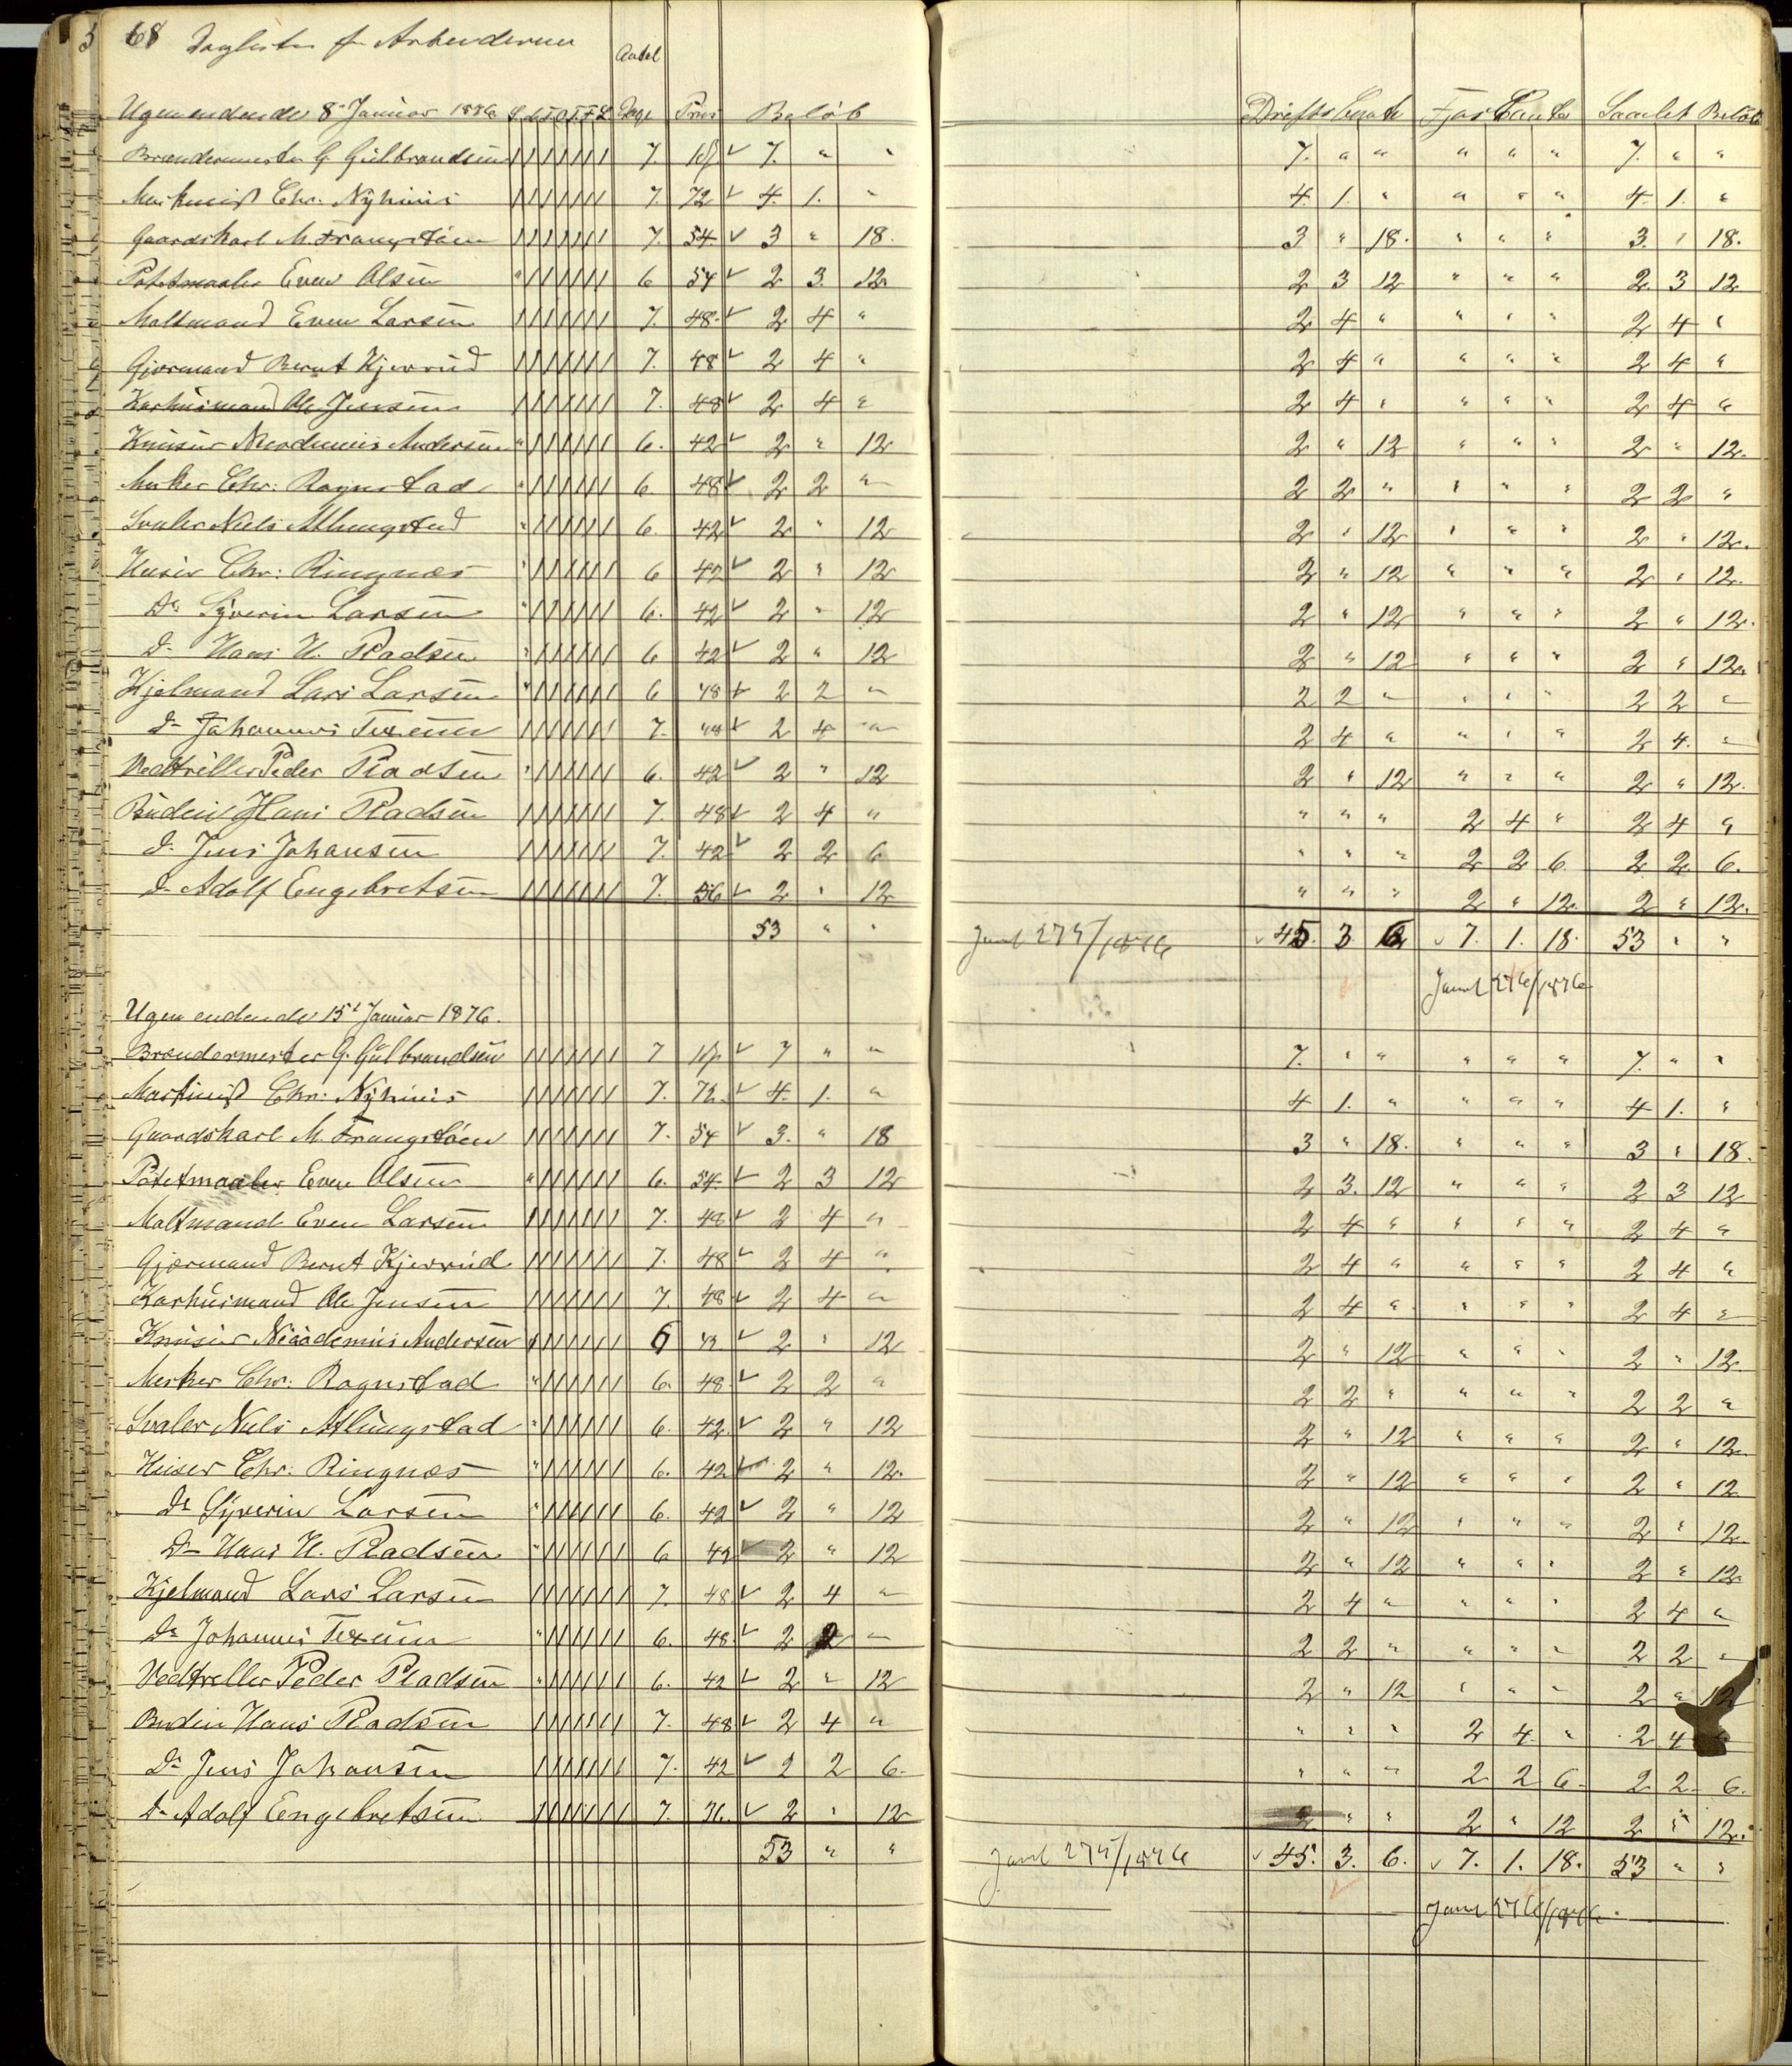 68 Daglister for Arbeiderne
Antal
Ugen endende 8de Januar 1876 S M T O T F L Dage Priis Beløb Drifts Conto Fjøs Conto Samlet Beløb
Brændermester G. Gulbrandsen 7. 1 7. " " 7. " " " " " 7. " "
Maskinist Chr. Nyhuus 7. 72 4. 1. " 4. 1. " " " " 4. 1. "
Gaardskarl M. 7. 54 3 " 18. 3 " 18. " " " 3. " 18.
Potetmaaler Even Olsen " 6 54 2 3. 12 2 3 12 " " " 2. 3 12
Maltmand Even Larsen 7. 48. 2 4 " 2 4 " " " " 2 4 "
Gjærmand Bernt Kjerrud 7. 48 2 4 " 2 4 " " " " 2 4 "
Karhuusmand Ole Jensen 7. 48 2 4 " 2 4 " " " " 2 4 "
Knuser Nicodemus Andersen " 6. 42 2 " 12 2 " 12 " " " 2 " 12.
Mesker Chr: Rognstad " 6. 48 2 2 " 2 2 " " " " 2 2 "
Svaler Niels Alhungstad " 6. 42 2 " 12 2 " 12 " " " 2 " 12.
Huser Chr: Ringnæs " 6 42 2 " 12 2 " 12 " " " 2 " 12.
Do Syverin Larsen " 6. 42 2 " 12 2 " 12 " " " 2 " 12.
Do Hans H. Pladsen " 6 42 2 " 12 2 " 12 " " " 2 " 12.
Kjelmand Lars Larsen " 6 48 2 2 " 2 2 " " " " 2 2 "
Do Johannes 7. 48 2 4 " 2 4 " " " " 2 4. "
Vedtriller Peder Pladsen " 6. 42 2 " 12 2 " 12 " " " 2 " 12.
Budeie Hans Pladsen 7. 48 2 4 " " " " 2 4 " 2 4 "
Do Jens Johansen 7. 42 2 2 6 " " " 2 2 6. 2 2. 6.
Do Adolf Engebretsen 7. 36 2 " 12 " " " 2 " 12. 2 " 12.
53 " " Journl 275/1876 45. 3 6 7. 1. 18. 53 " "
Journl 276/1876
Ugen endende 15de Januar 1876.
Brændermester G. Gulbrandsen 7 1 7 " " 7. " " " " " 7. " "
Maskinist Chr: Nyhuus 7. 72. 4. 1. " 4 1. " " " " 4 1. "
Gaardskarl M. 7. 54 3. " 18 3 " 18. " " " 3 " 18.
Potetmaaler Even Olsen " 6. 54. 2 3 12 2 3. 12 " " " 2 3 12
Maltmand Even Larsen 7. 48 2 4 " 2 4 " " " " 2 4 "
Gjærmand Bernt Kjerrud 7. 48 2 4 " 2 4 " " " " 2 4 "
Karhuusmand Ole Jensen 7. 48 2 4 " 2 4 " " " " 2 4 "
Knuser Nicodemus Andersen 6 42. 2 " 12 2 " 12 " " " 2 " 12.
Mesker Chr: Rognstad " 6. 48. 2 2 " 2 2 " " " " 2 2 "
Svaler Niels Alhungstad " 6. 42. 2 " 12 2 " 12 " " " 2 " 12.
Huser Chr: Ringnæs " 6. 42 2 " 12. 2 " 12 " " " 2 " 12
Do Syverin Larsen " 6. 42 2 " 12 2 " 12 " " " 2 " 12.
Do Hans H. Pladsen " 6 42 2 " 12 2 " 12 " " " 2 " 12.
Kjelmand Lars Larsen 7. 48 2 4 " 2 4 " " " " 2 4 "
Do Johannes " 6. 48. 2 2 " 2 2 " " " " 2 2 "
Vedtriller Peder Pladsen " 6. 42 2 " 12 2 " 12 " " " 2 " 12
Budeie Hans Pladsen 7. 48. 2 4 " " " " 2 4. " 2 4
Do Jens Johansen 7. 42 2 2 6. " " " 2 2 6. 2 2. 6.
Do Adolf Engebretsen 7. 36. 2 " 12 " " 2 " 12 2 " 12.
53 " " Journl 275/1876 45. 3. 6. 7. 1. 18. 53 " "
Journl 276/1876.